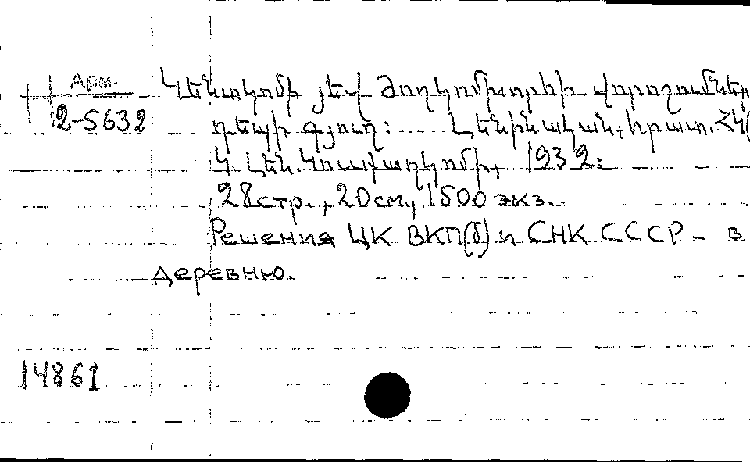 Арм.
2-5632
Կենտկոմի յեվ Ժողկոմխորհի վորոշումները
դեպի գյուղ: Լենինական, հրատ. ՀԿ(
Կ Լեն. Կուսքաղկոմի, 1932:
28 стр., 20 см, 1500 экз.
Решения ЦК ВКП(б) и СНК СССР - в
деревню.
14861